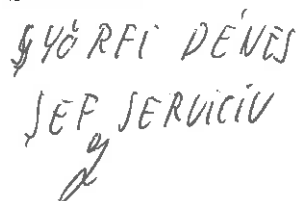 GYÖRFI DÉNES
ȘEF SERVICIU